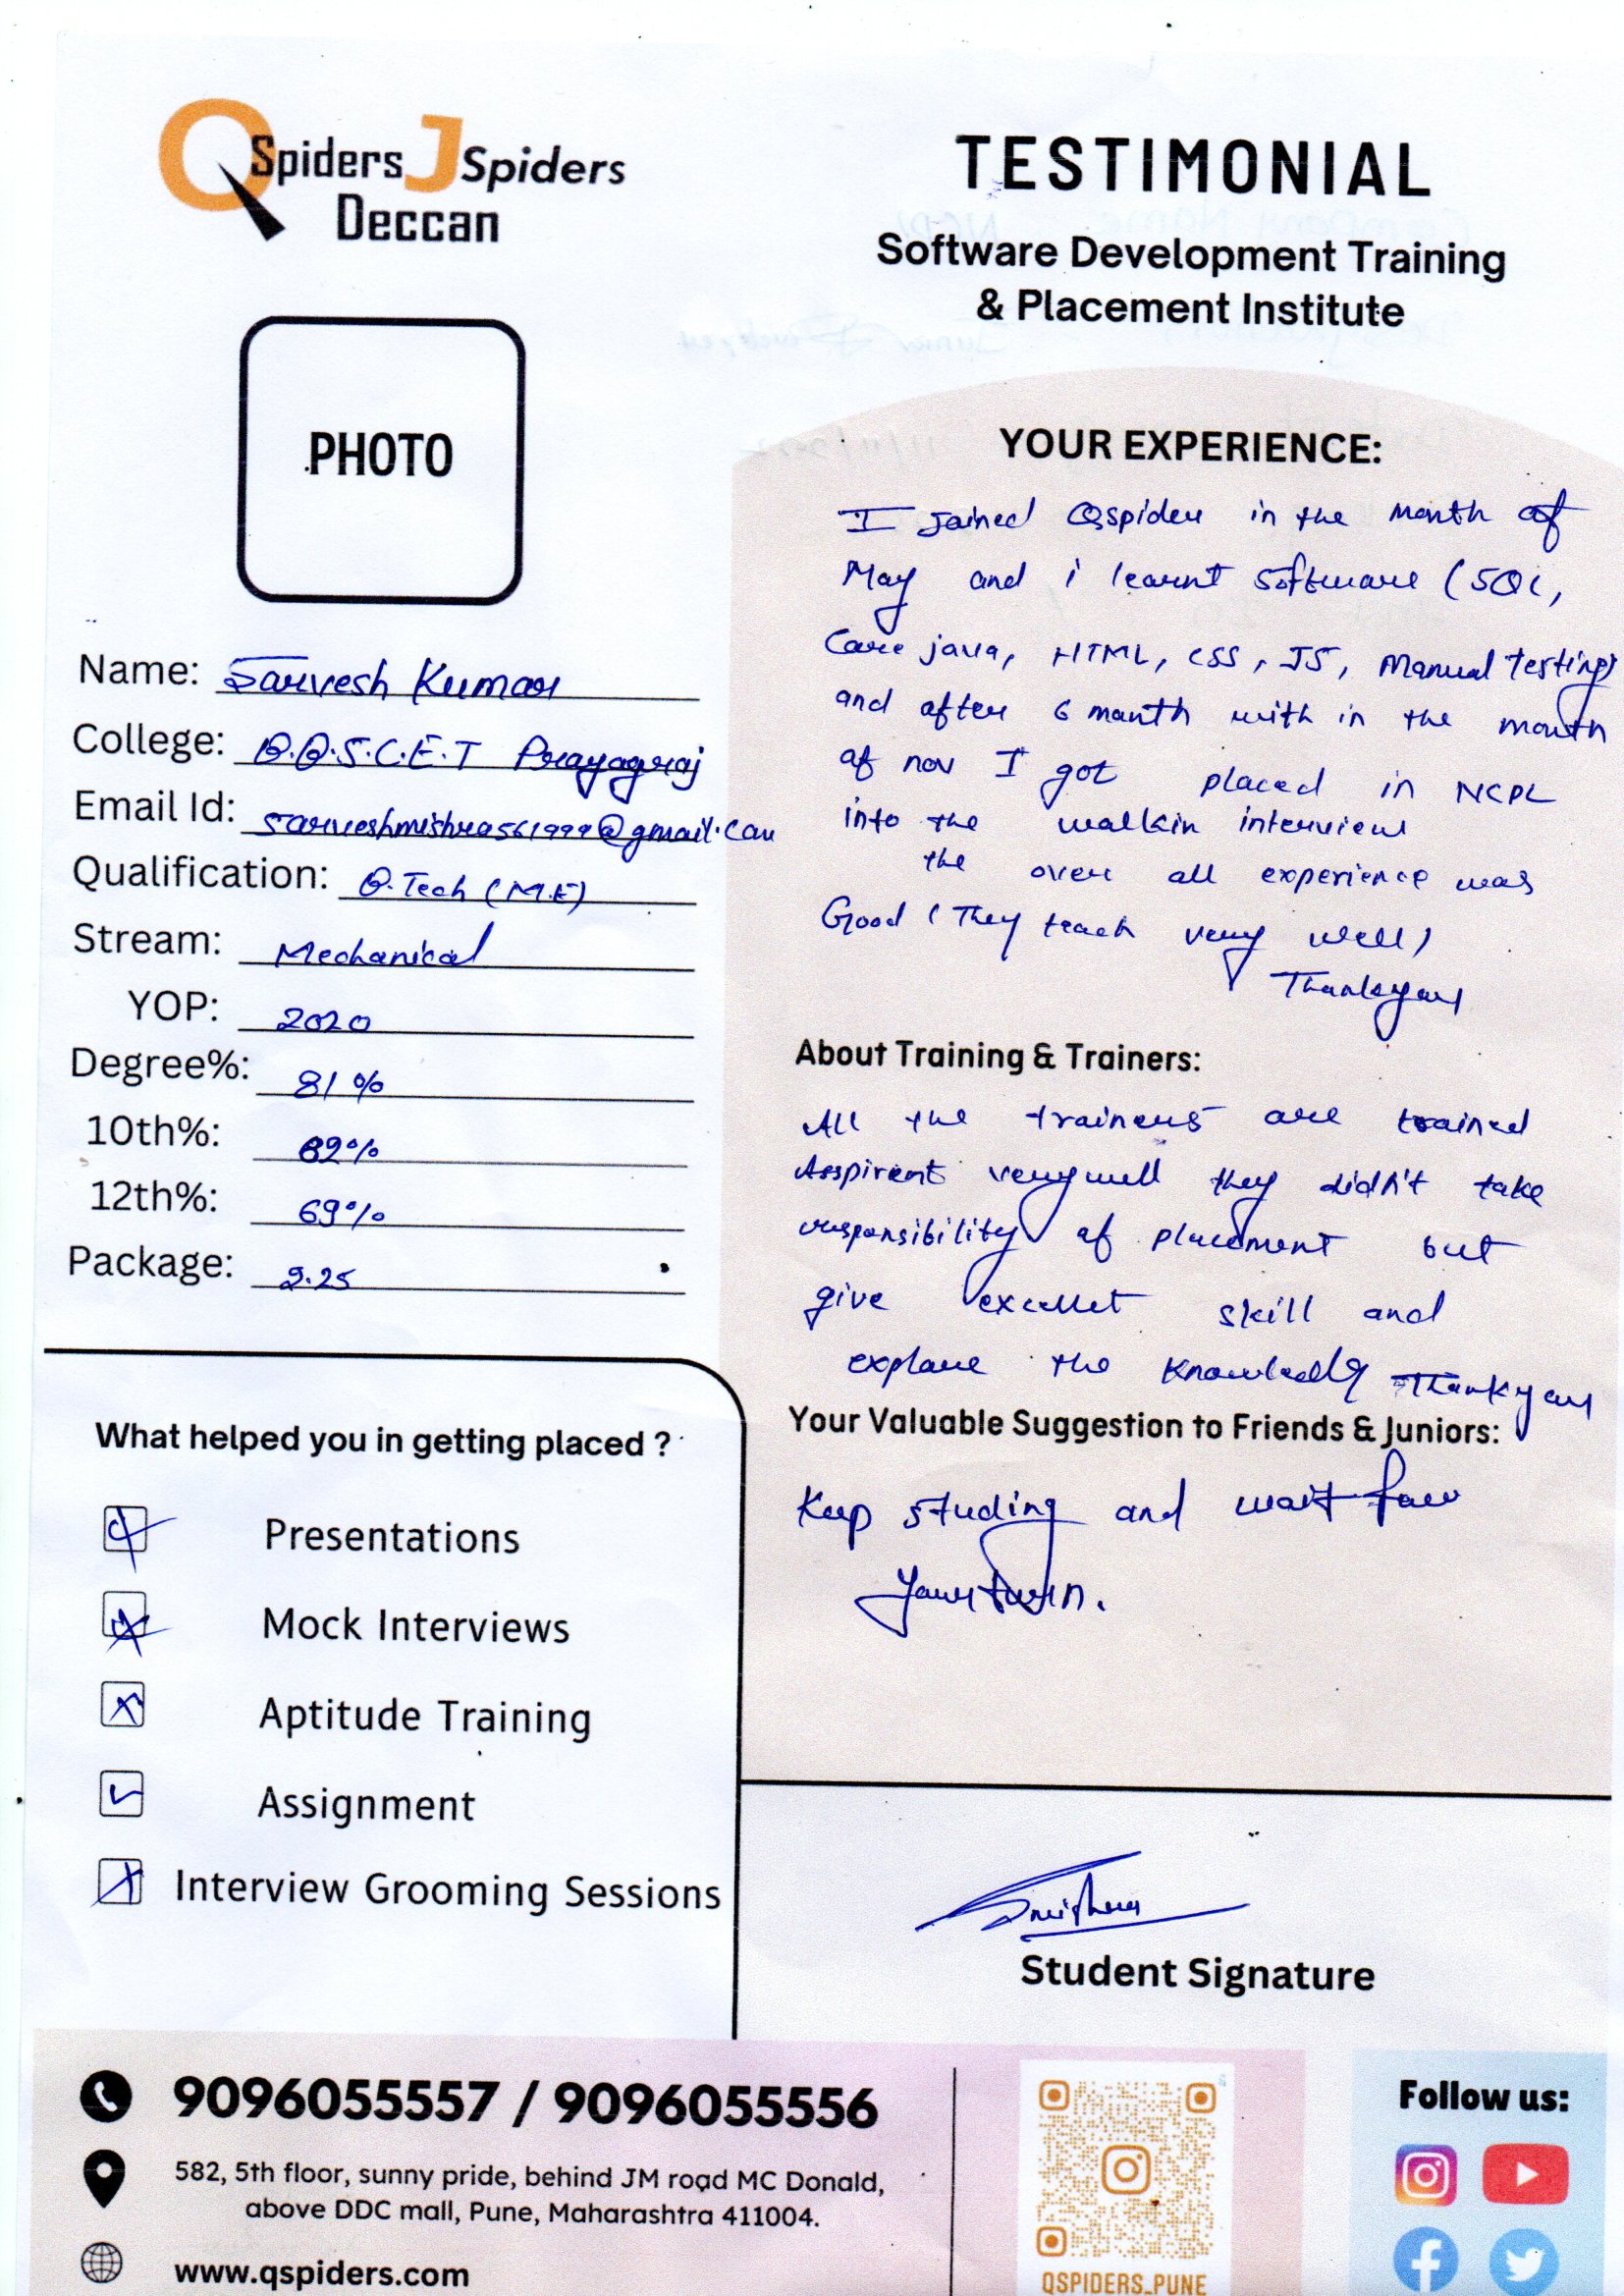 QSpiders JSpiders
Deccan
TESTIMONIAL
Software Development Training
& Placement Institute
PHOTO
Name: Sarvesh Kumar
College: B.B.S.C.E.T Prayagraj
Email Id: sarveshmishra561999@gmail.com
Qualification: B.Tech (M.E)
Stream: Mechanical
YOP: 2020
Degree%: 81%
10th%: 82%
12th%: 69%
Package: 2.25
What helped you in getting placed ?
Presentations
Mock Interviews
Aptitude Training
Assignment
Interview Grooming Sessions
YOUR EXPERIENCE:
I Joined Qspider in the month of
May and i learnt software (SQL,
Core java, HTML, CSS, JS, Manual testing)
and after 6 month with in the month
of nov I got placed in NCPL
into the walkin interview
the over all experience was
Good (They teach very well)
Thankyou
About Training & Trainers:
All the trainers are trained
Asspirent very well they didn't take
responsibility of placement but
give excellet skill and
explane the knowledg Thankyou
Your Valuable Suggestion to Friends & Juniors:
Keep studing and wait for
your turn.
Student Signature
9096055557 / 9096055556
582, 5th floor, sunny pride, behind JM road MC Donald,
above DDC mall, Pune, Maharashtra 411004.
www.qspiders.com
QSPIDERS_PUNE
Follow us: